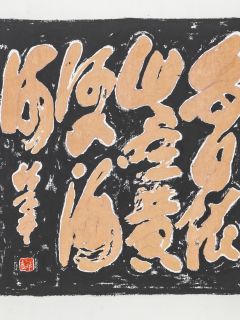 白日依
山盡黄
河入海
流